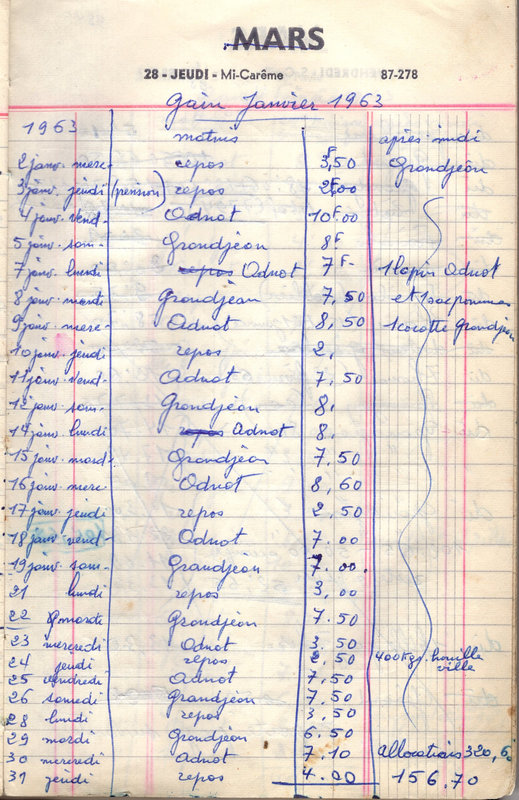 MARS
28 - JEUDI - Mi-Carême 87-278
Gain Janvier 1963
1963 matins après-midi
2 janv. merc. repos 3F,50 Grandjeôn
3 janv. jeudi (pension) repos 2F,00
4 janv. vend. Adnot 10F.00
5 janv. sam. Grandjeôn 8F
7 janv. lundi repos Adnot 7F- 1 lapin Adnot
8 janv. mardi Grandjeôn 7,50 et 1 sac pommes
9 janv. merc. Adnot 8,50 1 cocotte Grandjeon
10 janv. jeudi repos 2,
11 janv. vend. Adnot 7,50
12 janv. sam. Grandjeôn 8,
14 janv. lundi repos Adnot 8,
15 janv. mard. Grandjeôn 7.50
16 janv. merc. Adnot 8,60
17 janv. jeudi repos 2,50
18 janv. vend. Adnot 7.00
19 janv. sam. Grandjeôn 7.00.
21 lundi repos 3,00
22 mardi Grandjeôn 7.50
23 mercredi Adnot 3.50
24 jeudi repos 2,50 400kgs houille
25 vendredi Adnot 7,50 ville
26 samedi Grandjeôn 7,50
28 lundi repos 3,50
29 mardi Grandjeôn 6.50
30 mercredi Adnot 7.10 allocations 320,6
31 jeudi repos 4.00 156.70